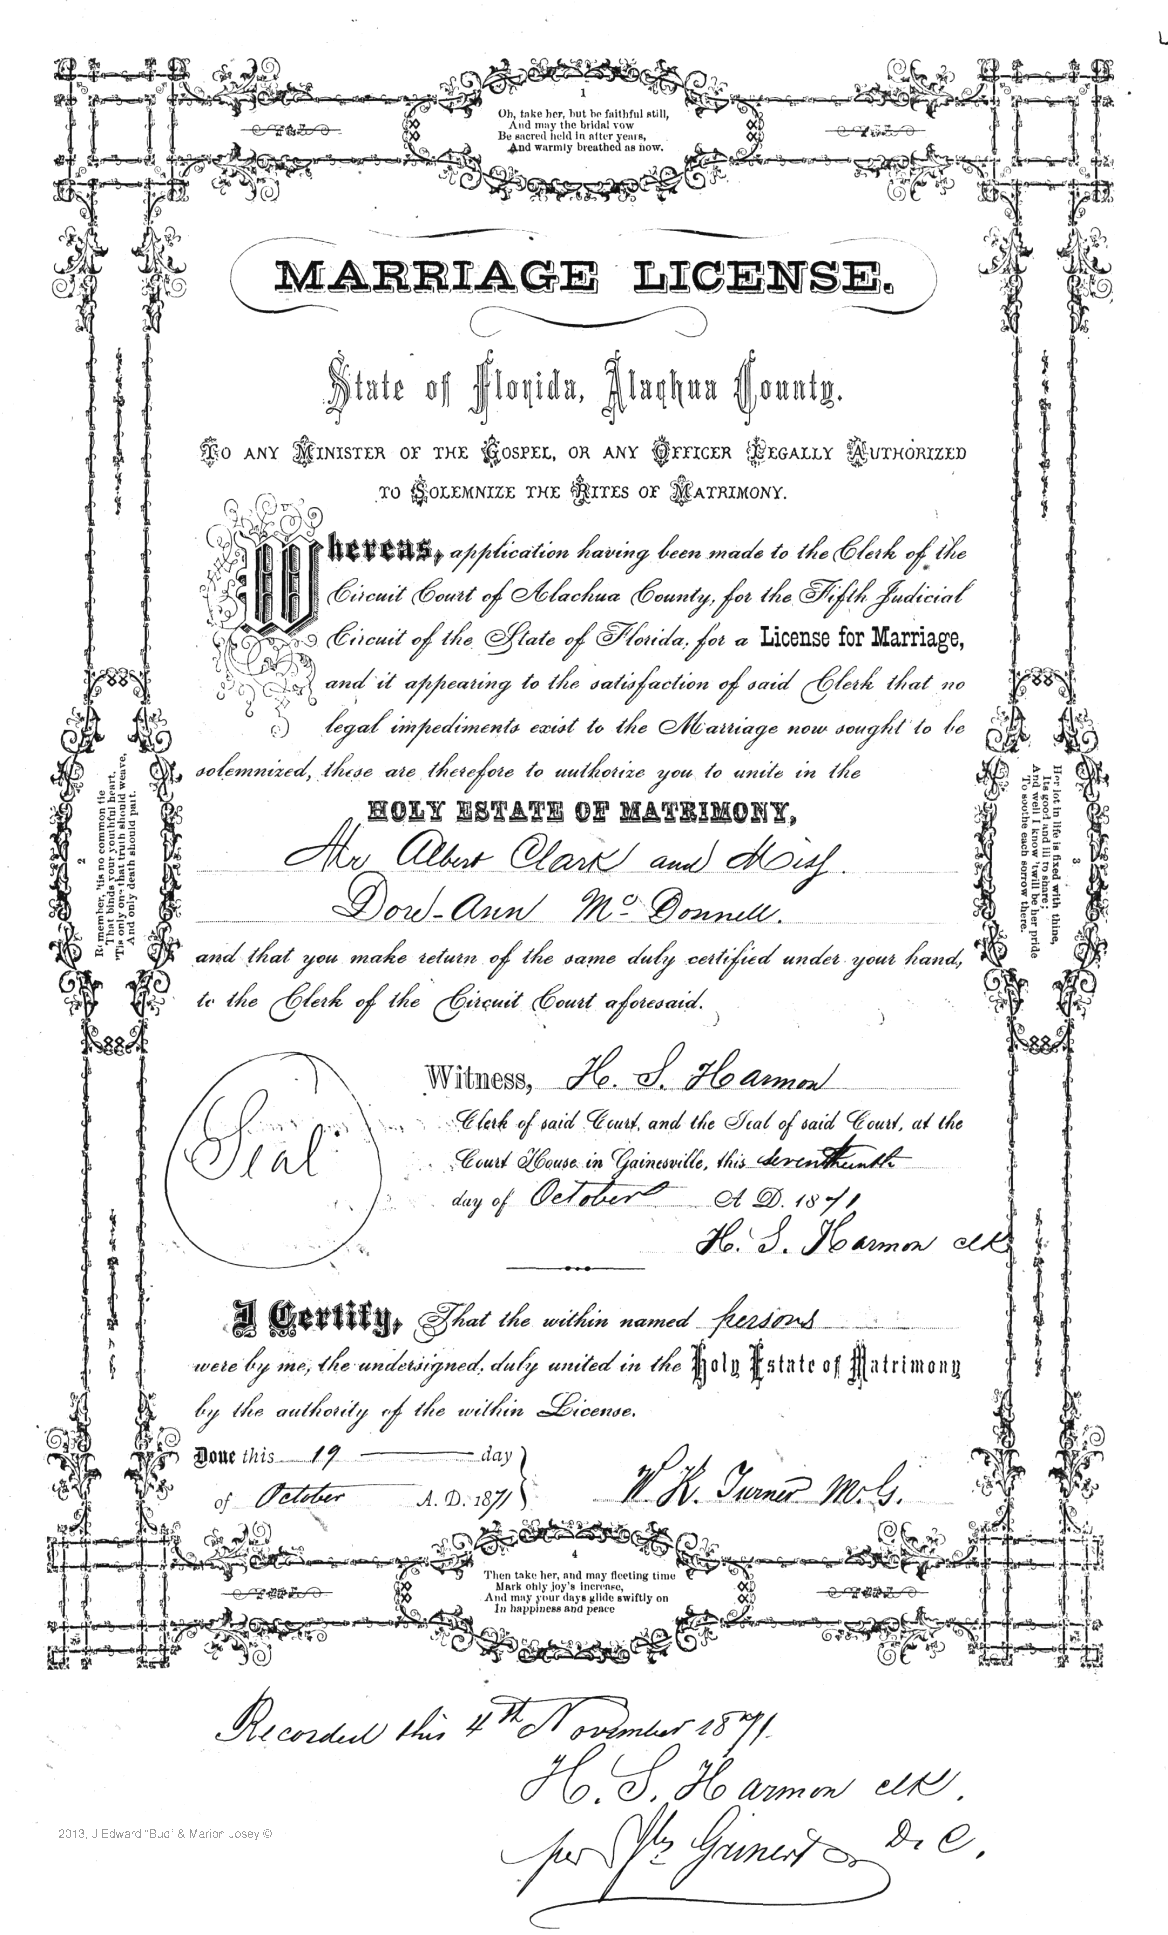 1
Oh, take her, but be faithful still,
And may the bridal vow
Be sacred held in after years,
And warmly breathed as now.
MARRIAGE LICENSE.
State of Florida, Alachua County.
TO ANY MINISTER OF THE GOSPEL, OR ANY OFFICER LEGALLY AUTHORIZED
TO SOLEMNIZE THE RITES OF MATRIMONY.
Whereas, application having been made to the Clerk of the
Circuit Court of Alachua County, for the Fifth Judicial
Circuit of the State of Florida, for a License for Marriage,
and it appearing to the satisfaction of said Clerk that no
legal impediments exist to the Marriage now sought to be
solemnized, these are therefore to authorize you to unite in the
HOLY ESTATE OF MATRIMONY,
Mr Albert Clark and Miss
Dow-Ann Mc Donnell.
and that you make return of the same duly certified under your hand,
to the Clerk of the Circuit Court aforesaid.
2
Remember, 'tis no common tie
That binds your youthful heart,
'Tis only one that truth should weave,
And only death should part.
3
Her lot in life is fixed with thine,
Its good and ill to share;
And well I know 'twill be her pride
To soothe each sorrow there.
Seal
Witness, H. S. Harmon
Clerk of said Court, and the Seal of said Court, at the
Court House in Gainesville, this seventeenth
day of October A. D. 1871
H. S. Harmon clk
I Certify, That the within named persons
were by me, the undersigned, duly united in the Holy Estate of Matrimony
by the authority of the within License.
Done this 19 day
of October A. D. 1871
W. K. Turner M. G.
4
Then take her, and may fleeting time
Mark only joy's increase,
And may your days glide swiftly on
In happiness and peace
Recorded this 4th November 1871.
H. S. Harmon clk.
per Grinert D. C.
2013, J Edward "Bud" & Marion Josey ©